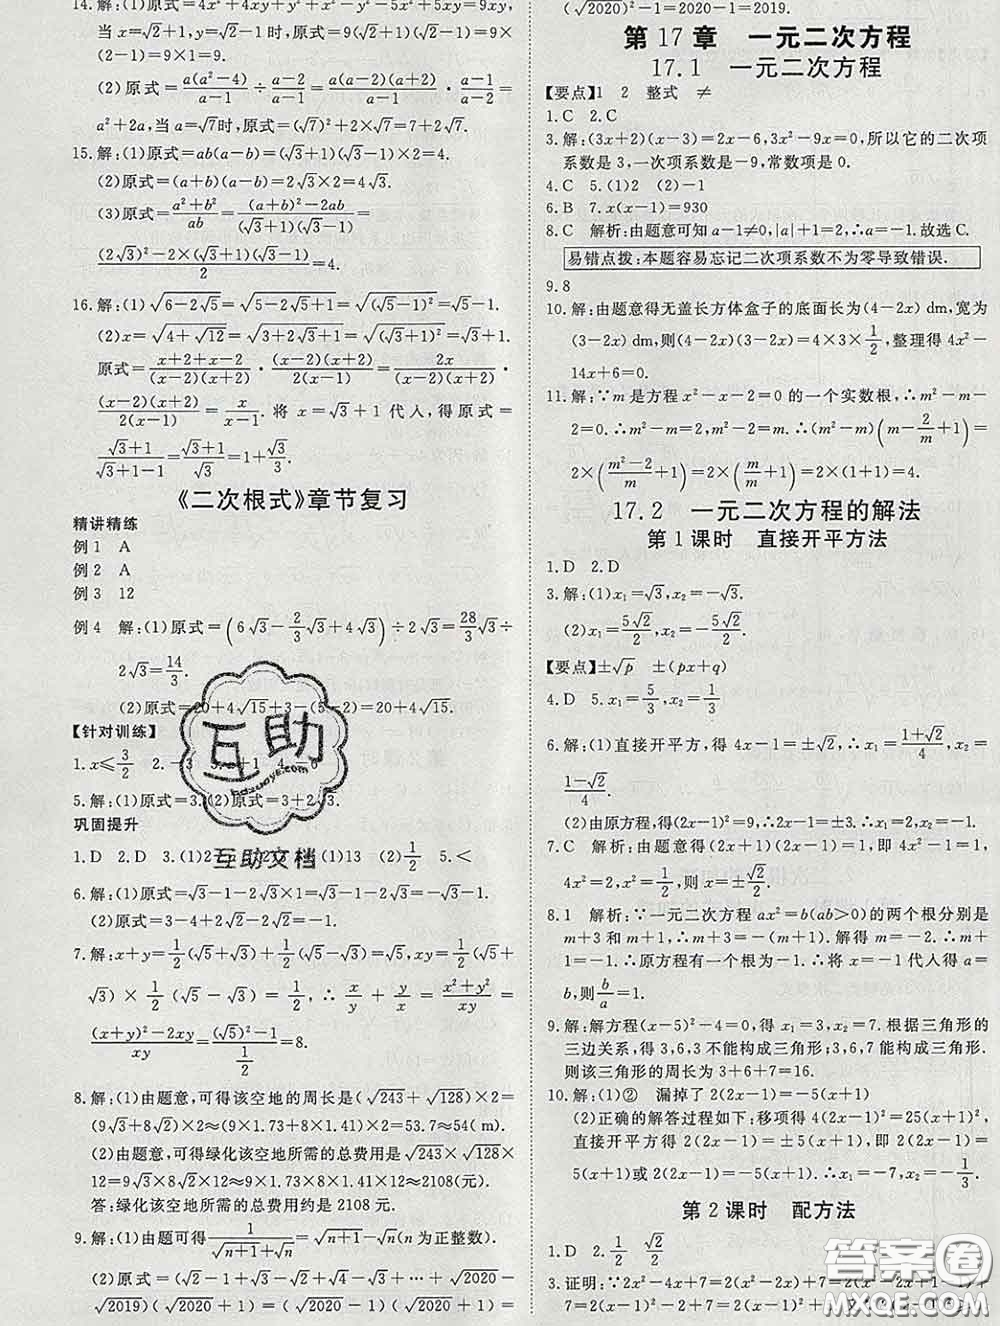 14. 解:(1)原式=4x²+4xy+y²+x²−y²−5x²+5xy=9xy,
当 x=√2+1,y=√2−1时,原式=9(√2+1)×
(√2−1)=9×1=9.
(2)原式=a(a²−4)/(a−1)÷(a−2)/(a−1)=a(a−2)(a+2)/(a−1)·(a−1)/(a−2)=
a²+2a,当a=√7时,原式=(√7)²+2×√7=7+2√7.
15. 解:(1)原式=ab(a−b)=(√3+1)(√3−1)×2=4.
(2)原式=(a+b)(a−b)=2√3×2=4√3.
(3)原式=(a²+b²)/ab=((a+b)²−2ab)/((√3+1)(√3−1))=
((2√3)²−2×(√3+1)(√3−1))/2=4.
16. 解:(1)√(6−2√5)=√(5−2√5+1)=√((√5−1)²)=√5−1.
(2)x=√(4+√12)=√(3+2√3+1)=√((√3+1)²)=√3+1.
原式=(x+2+x−2)/((x−2)(x+2))·((x−2)(x+2))/(2(x−1))=2x/((x−2)(x+2))·
((x−2)(x+2))/(2(x−1))=x/(x−1). 将 x=√3+1 代入,得原式=
(√3+1)/(√3+1−1)=(√3+1)/√3=1+√3/3.
《二次根式》章节复习
精讲精练
例1 A
例2 A
例3 12
例4 解:(1)原式=(6√3−2/3√3+4√3)÷2√3=28/3√3÷
2√3=14/3.
(2)原式=20+4√15+3−(5−2)=20+4√15.
【针对训练】
1. x≤3/2 2. −3 3. 1 4. −6
5. 解:(1)原式=3.(2)原式=3+2√3.
巩固提升
1. D 2. D 3. (1)13 (2)1/2 5. <
6. 解:(1)原式=√3−1−2√3×1=√3−1−2√3=−1−√3.
(2)原式=3−4+2√2−2√2=−1.
7. 解:x+y=1/2(√5+√3)+1/2(√5−√3)=√5,xy=1/2(√5+
√3)×1/2(√5−√3)=1/2. ∴x/y+y/x=(x²+y²)/xy=
((x+y)²−2xy)/xy=((√5)²−1)/(1/2)=8.
8. 解:(1)由题意,可得该空地的周长是(√243+√128)×2=
(9√3+8√2)×2≈(9×1.73+8×1.41)×2=53.7≈54(m).
(2)由题意,可得绿化该空地所需的总费用是√243×√128
×12=9√3×8√2×12≈9×1.73×8×1.41×12≈2108(元).
答:绿化该空地所需的总费用约是2108元.
9. 解:(1)由题可得1/(√(n+1)+√n)=√(n+1)−√n(n为正整数).
(2)原式=(√2−√1+√3−√2+√4−√3+…+√2020−
√2019)(√2020+1)=(√2020−√1)(√2020+1)=
(√2020)²−1=2020−1=2019.
第17章 一元二次方程
17.1 一元二次方程
【要点】1 2 整式 ≠
1. C 2. C
3. 解:(3x+2)(x−3)=2x−6,3x²−9x=0,所以它的二次项
系数是3,一次项系数是−9,常数项是0.
4. C 5. (1)2 (2)−1
6. B 7. x(x−1)=930
8. C 解析:由题意可知a−1≠0,|a|+1=2,∴a=−1. 故选C.
易错点拨:本题容易忘记二次项系数不为零导致错误.
9. 8
10. 解:由题意得无盖长方体盒子的底面长为(4−2x) dm,宽为
(3−2x) dm,则(4−2x)(3−2x)=4×3×1/2,整理得4x²−
14x+6=0.
11. 解:∵m是方程x²−x−2=0的一个实数根,∴m²−m−
2=0.∴m²−m=2,m²−2=m.∴(m²−m)(m−2/m+1)=
2×((m²−2)/m+1)=2×(m/m+1)=2×(1+1)=4.
17.2 一元二次方程的解法
第1课时 直接开平方法
1. D 2. D
3. 解:(1)x₁=√3,x₂=−√3.
(2)x₁=5√2/2,x₂=−5√2/2.
【要点】±√p ±(px+q)
4. D 5. x₁=5/3,x₂=1/3
6. 解:(1)直接开平方,得 4x−1=±√2,∴x₁=(1+√2)/4,x₂=
(1−√2)/4.
(2)由原方程,得(2x−1)²=9,∴2x−1=±3.∴x₁=2,x₂=−1.
7. C 解析:由题意得(2x+1)(2x−1)=1,即 4x²−1=1,
4x²=2,x²=1/2,∴x=±√2/2.
8. 1 解析:∵一元二次方程 ax²=b(ab>0)的两个根分别是
m+3 和 m+1,∴m+3+m+1=0. 解得 m=−2. ∴m+
1=−1. ∴原方程有一个根为−1. ∴将 x=−1 代入得 a=
b,则b/a=1.
9. 解:解方程(x−5)²−4=0,得 x₁=3,x₂=7. 根据三角形的
三边关系,得 3,6,3 不能构成三角形;3,6,7 能构成三角形.
则该三角形的周长为 3+6+7=16.
10. 解:(1)② 漏掉了 2(2x−1)=−5(x+1)
(2)正确的解答过程如下:移项得 4(2x−1)²=25(x+1)²,
直接开平方得 2(2x−1)=±5(x+1),即 2(2x−1)=
5(x+1)或 2(2x−1)=−5(x+1).∴x₁=−7,x₂=−1/3.
第2课时 配方法
1. D 2. 1/2 √2/2
3. 证明:∵2x²−4x+7=2(x²−2x)+7=2(x²−2x+1−1)+
互助
hdzuoye.com
互助文档
答案圈
MXQE.COM